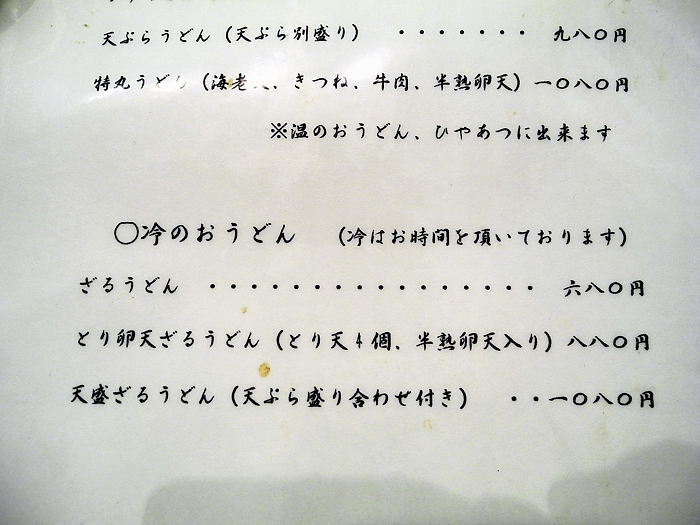 天ぷらうどん（天ぷら別盛り） ・・・・・・・ 九八〇円
特丸うどん（海老天、きつね、牛肉、半熟卵天）一〇八〇円
※温のおうどん、ひやあつに出来ます
〇冷のおうどん （冷はお時間を頂いております）
ざるうどん ・・・・・・・・・・・・・・・・ 六八〇円
とり卵天ざるうどん（とり天４個、半熟卵天入り）八八〇円
天盛ざるうどん（天ぷら盛り合わせ付き） ・・一〇八〇円